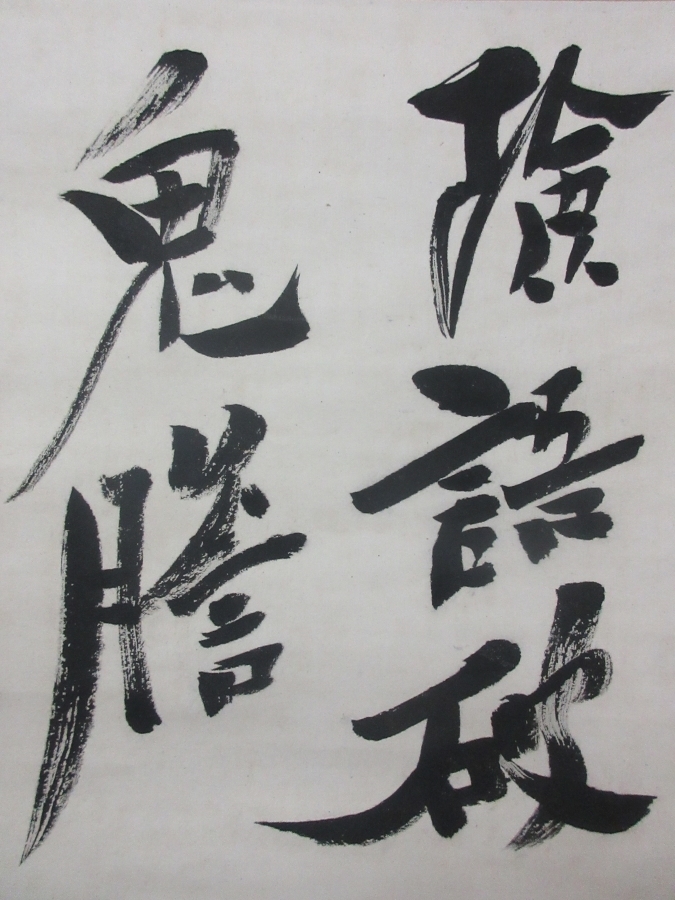 險語破
鬼膽